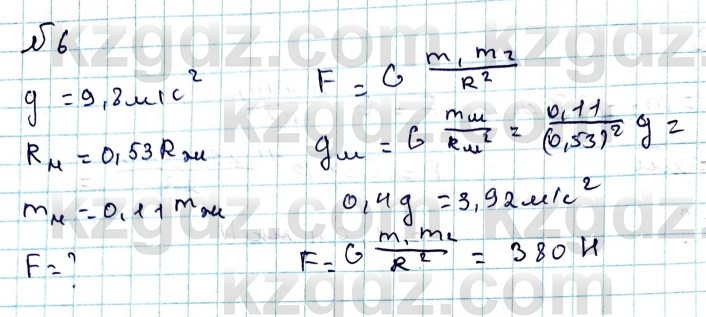 № 6
g = 9,8 м/с²
Rм = 0,53 Rж
mм = 0,11 mж
F = ?
F = G m₁ m₂ / R²
gм = G mм / Rм² = 0,11 / (0,53)² g =
0,4 g = 3,92 м/с²
F = G m₁ m₂ / R² = 380 Н
kzgdz.com